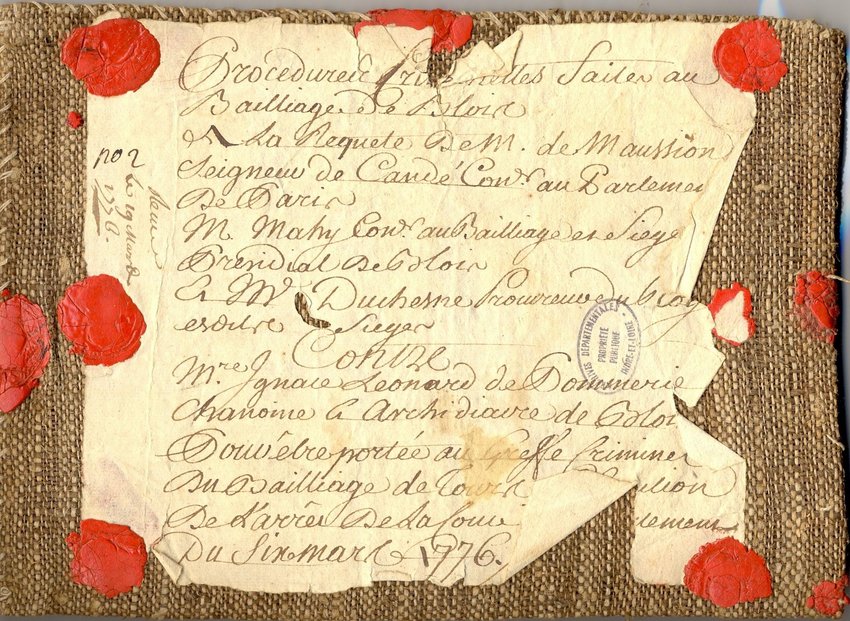 Procedures Criminelles faites au
Bailliage de Blois
a La Requete De M. de Maussion
Seigneur de Candé Con.er au Parlemen
De Paris
M. Mahy Con.er au Bailliage et Siege
Presidial De Blois
& Mr Duchesne Procureur du Roy
esdits Sieges
Contre
Mre Ignace Leonard de Pommerie
Chanoine & Archidiacre de Blois
Pour être portée au Greffe Criminel
Du Bailliage de Tours
De L'arrêt De La Cour
Du Six mars 1776.
no 2
Le 19
1776.
ARCHIVES DEPARTEMENTALES
PROPRIÉTÉ
PUBLIQUE
INDRE-ET-LOIRE